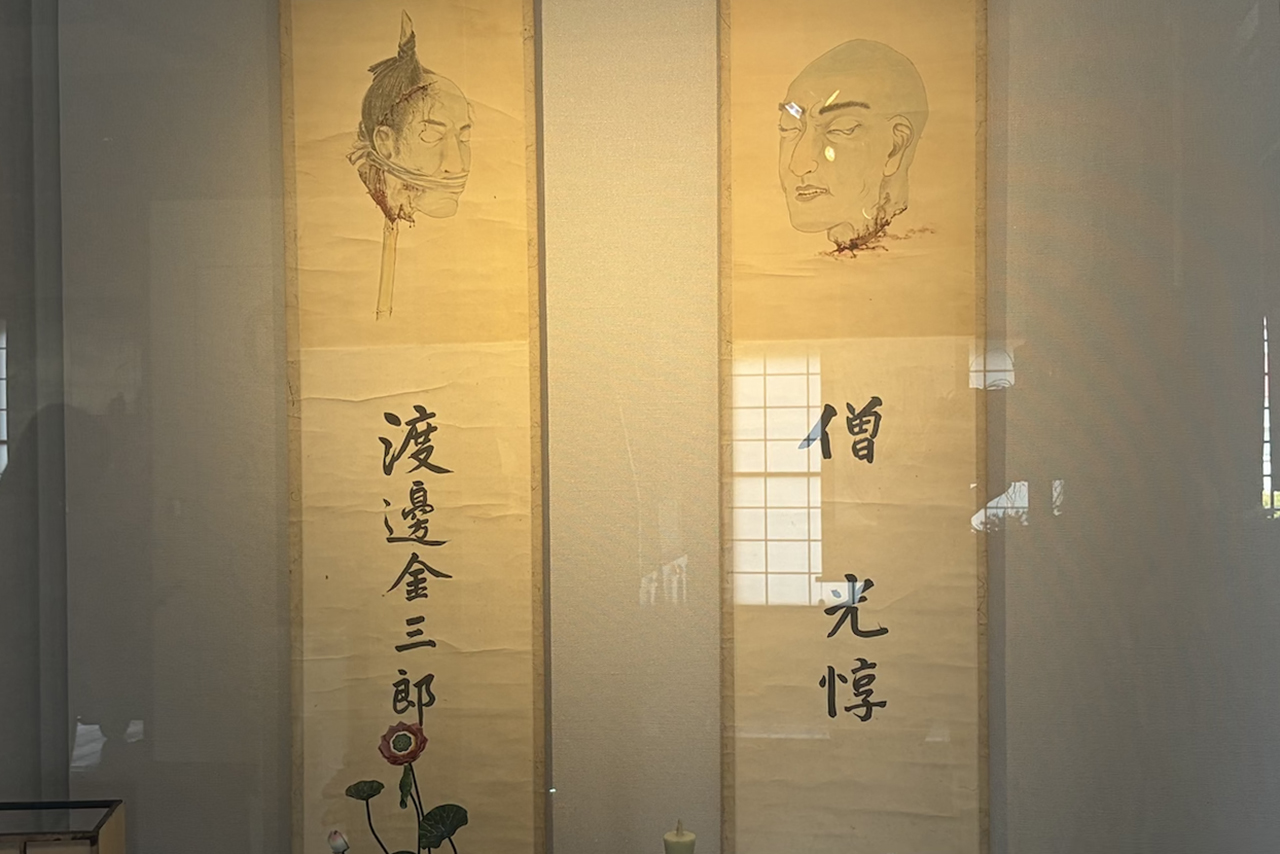 僧 光惇
渡邊金三郎